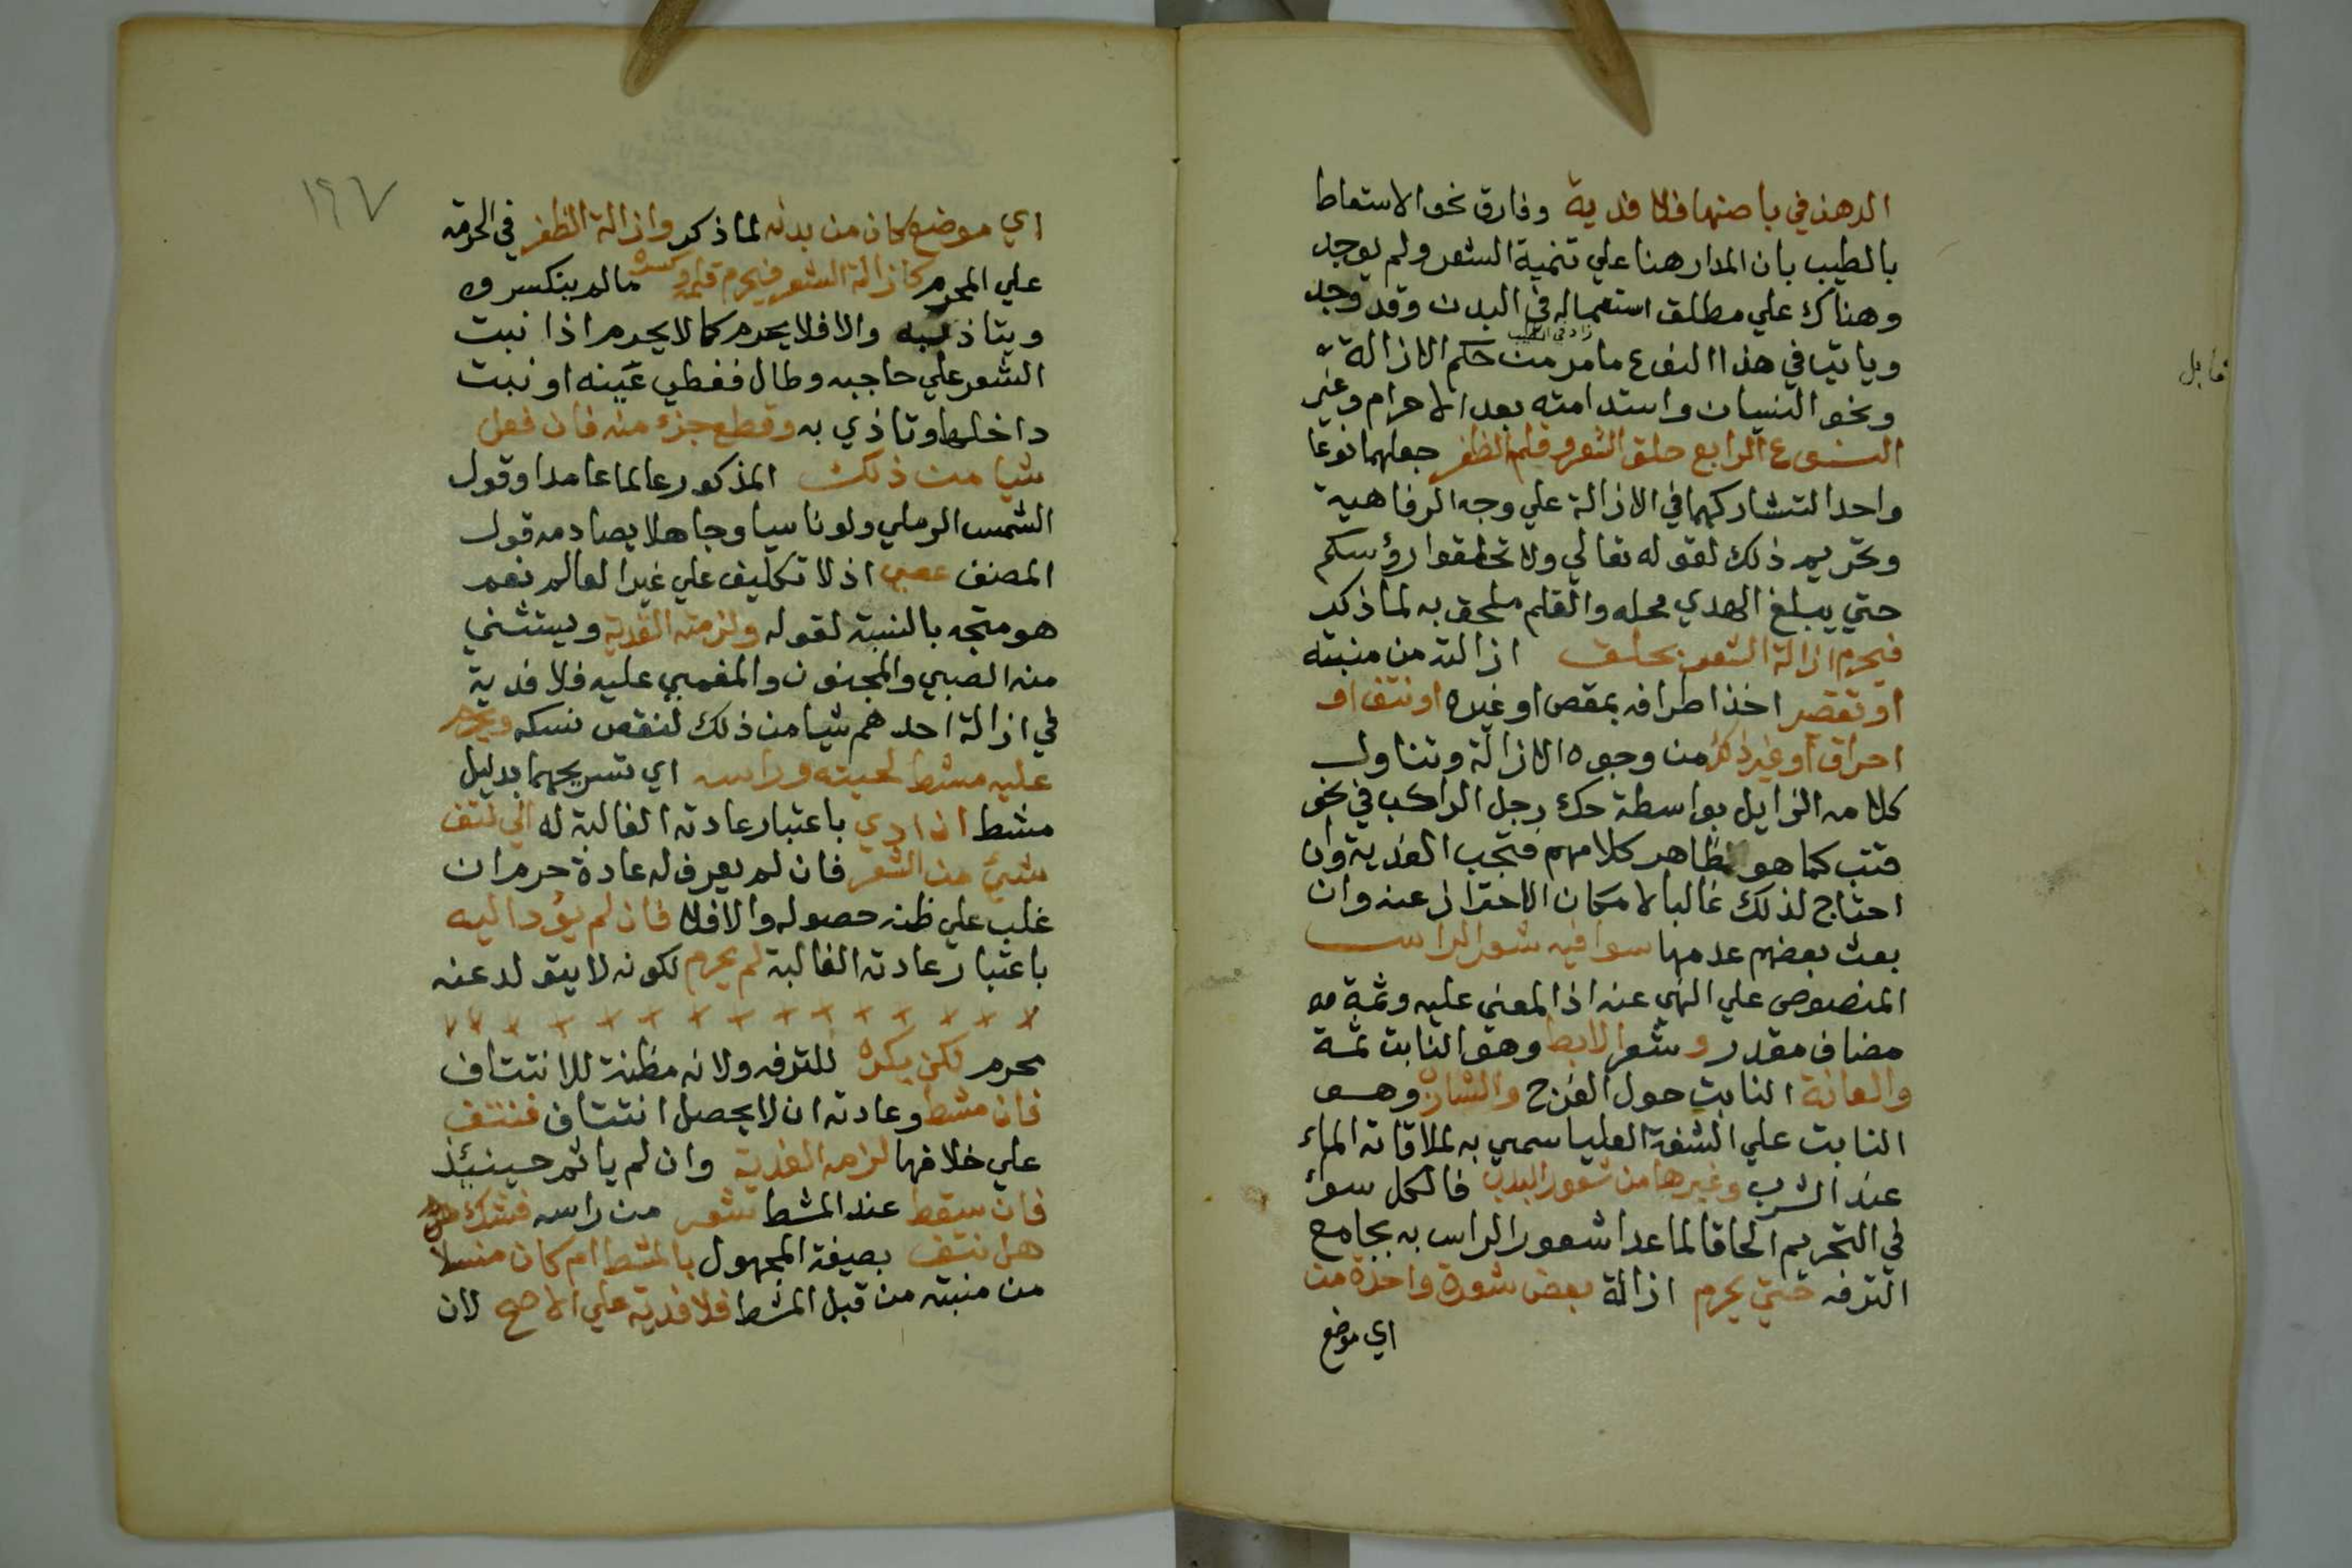 الدهن في باطنها فلا فدية وفارق نحو الاستعاط
بالطيب بان المدار هنا علي تنمية الشعر ولم يوجد
وهناك علي مطلق استعماله في البدن وقد وجد
وياتي في هذا النوع ما مر من حكم الازالة
زاد في الطيب
ونحو النسيان واستدامته بعد الاحرام وغير
قابل
النوع الرابع حلق الشعر وقلم الظفر جعلهما نوعا
واحدا لتشاركهما في الازالة علي وجه الرفاهية
وتحريم ذلك لقوله تعالي ولا تحلقوا رؤسكم
حتي يبلغ الهدي محله والقلم ملحق به لما ذكر
فيحرم ازالة الشعر بحلق ازالته من منبته
او تقصير اخذ اطرافه بمقص او غيره او نتف او
احراق او غير ذلك من وجوه الازالة وتناول
كلامه الزايل بواسطة حك رجل الراكب في نحو
قتب كما هو ظاهر كلامهم فتجب الفدية وان
احتاج لذلك غالبا لامكان الاحتراز عنه وان
بحث بعضهم عدمها سوا فيه شعر الراس
المنصوص علي النهي عنه اذ المعني عليه وثمة
مضاف مقدر وشعر الابط وهو النابت ثمة
والعانة النابت حول الفرج والشارب وهو
النابت علي الشفة العليا سمي به لملاقاته الماء
عند الشرب وغيرها من شعور البدن فالكل سوء
في التحريم الحاقا لما عدا شعور الراس به بجامع
الترفه حتي يحرم ازالة بعض شعرة واحدة من
اي موضع
١٩٧
اي موضع كان من بدنه لما ذكر وازالة الظفر في الحرمة
علي المحرم كازالة الشعر فيحرم قلمه وكسره مالم ينكسر
ويتاذ به والا فلا يحرم كما لا يحرم اذا نبت
الشعر علي حاجبه وطال فغطي عينه او نبت
داخلها وتاذي به وقطع جزء منه فان فعل
شيا من ذلك المذكور عالما عامدا وقول
الشمس الرملي ولو ناسيا وجاهلا يصادمه قول
المصنف عصي اذ لا تكليف علي غير العالم نعم
هو متجه بالنسبة لقوله ولزمته الفدية ويستثني
منه الصبي والمجنون والمغمي عليه فلا فدية
في ازالة احدهم شيا من ذلك لنقص نسكه ويحرم
عليه مشط لحيته وراسه اي تسريحهما بدليل
مشط ان ادي باعتبار عادته الغالبة له الي نتف
شيئ من الشعر فان لم يعرف له عادة حرم ان
غلب علي ظنه حصوله والا فلا فان لم يؤد اليه
باعتبار عادته الغالبة لم يحرم لكونه لا يتولد عنه
محرم لكن يكره للترفه ولانه مظنة للانتتاف
فان مشط وعادته ان لا يحصل انتتاف فنتف
علي خلافها لزمه الفدية وان لم ياثم حينيئذ
فان سقط عند المشط شعر من راسه فشك
هل نتف بصيغة المجهول بالمشط ام كان منسلا
من منبته من قبل المشط فلا فدية علي الاصح لان